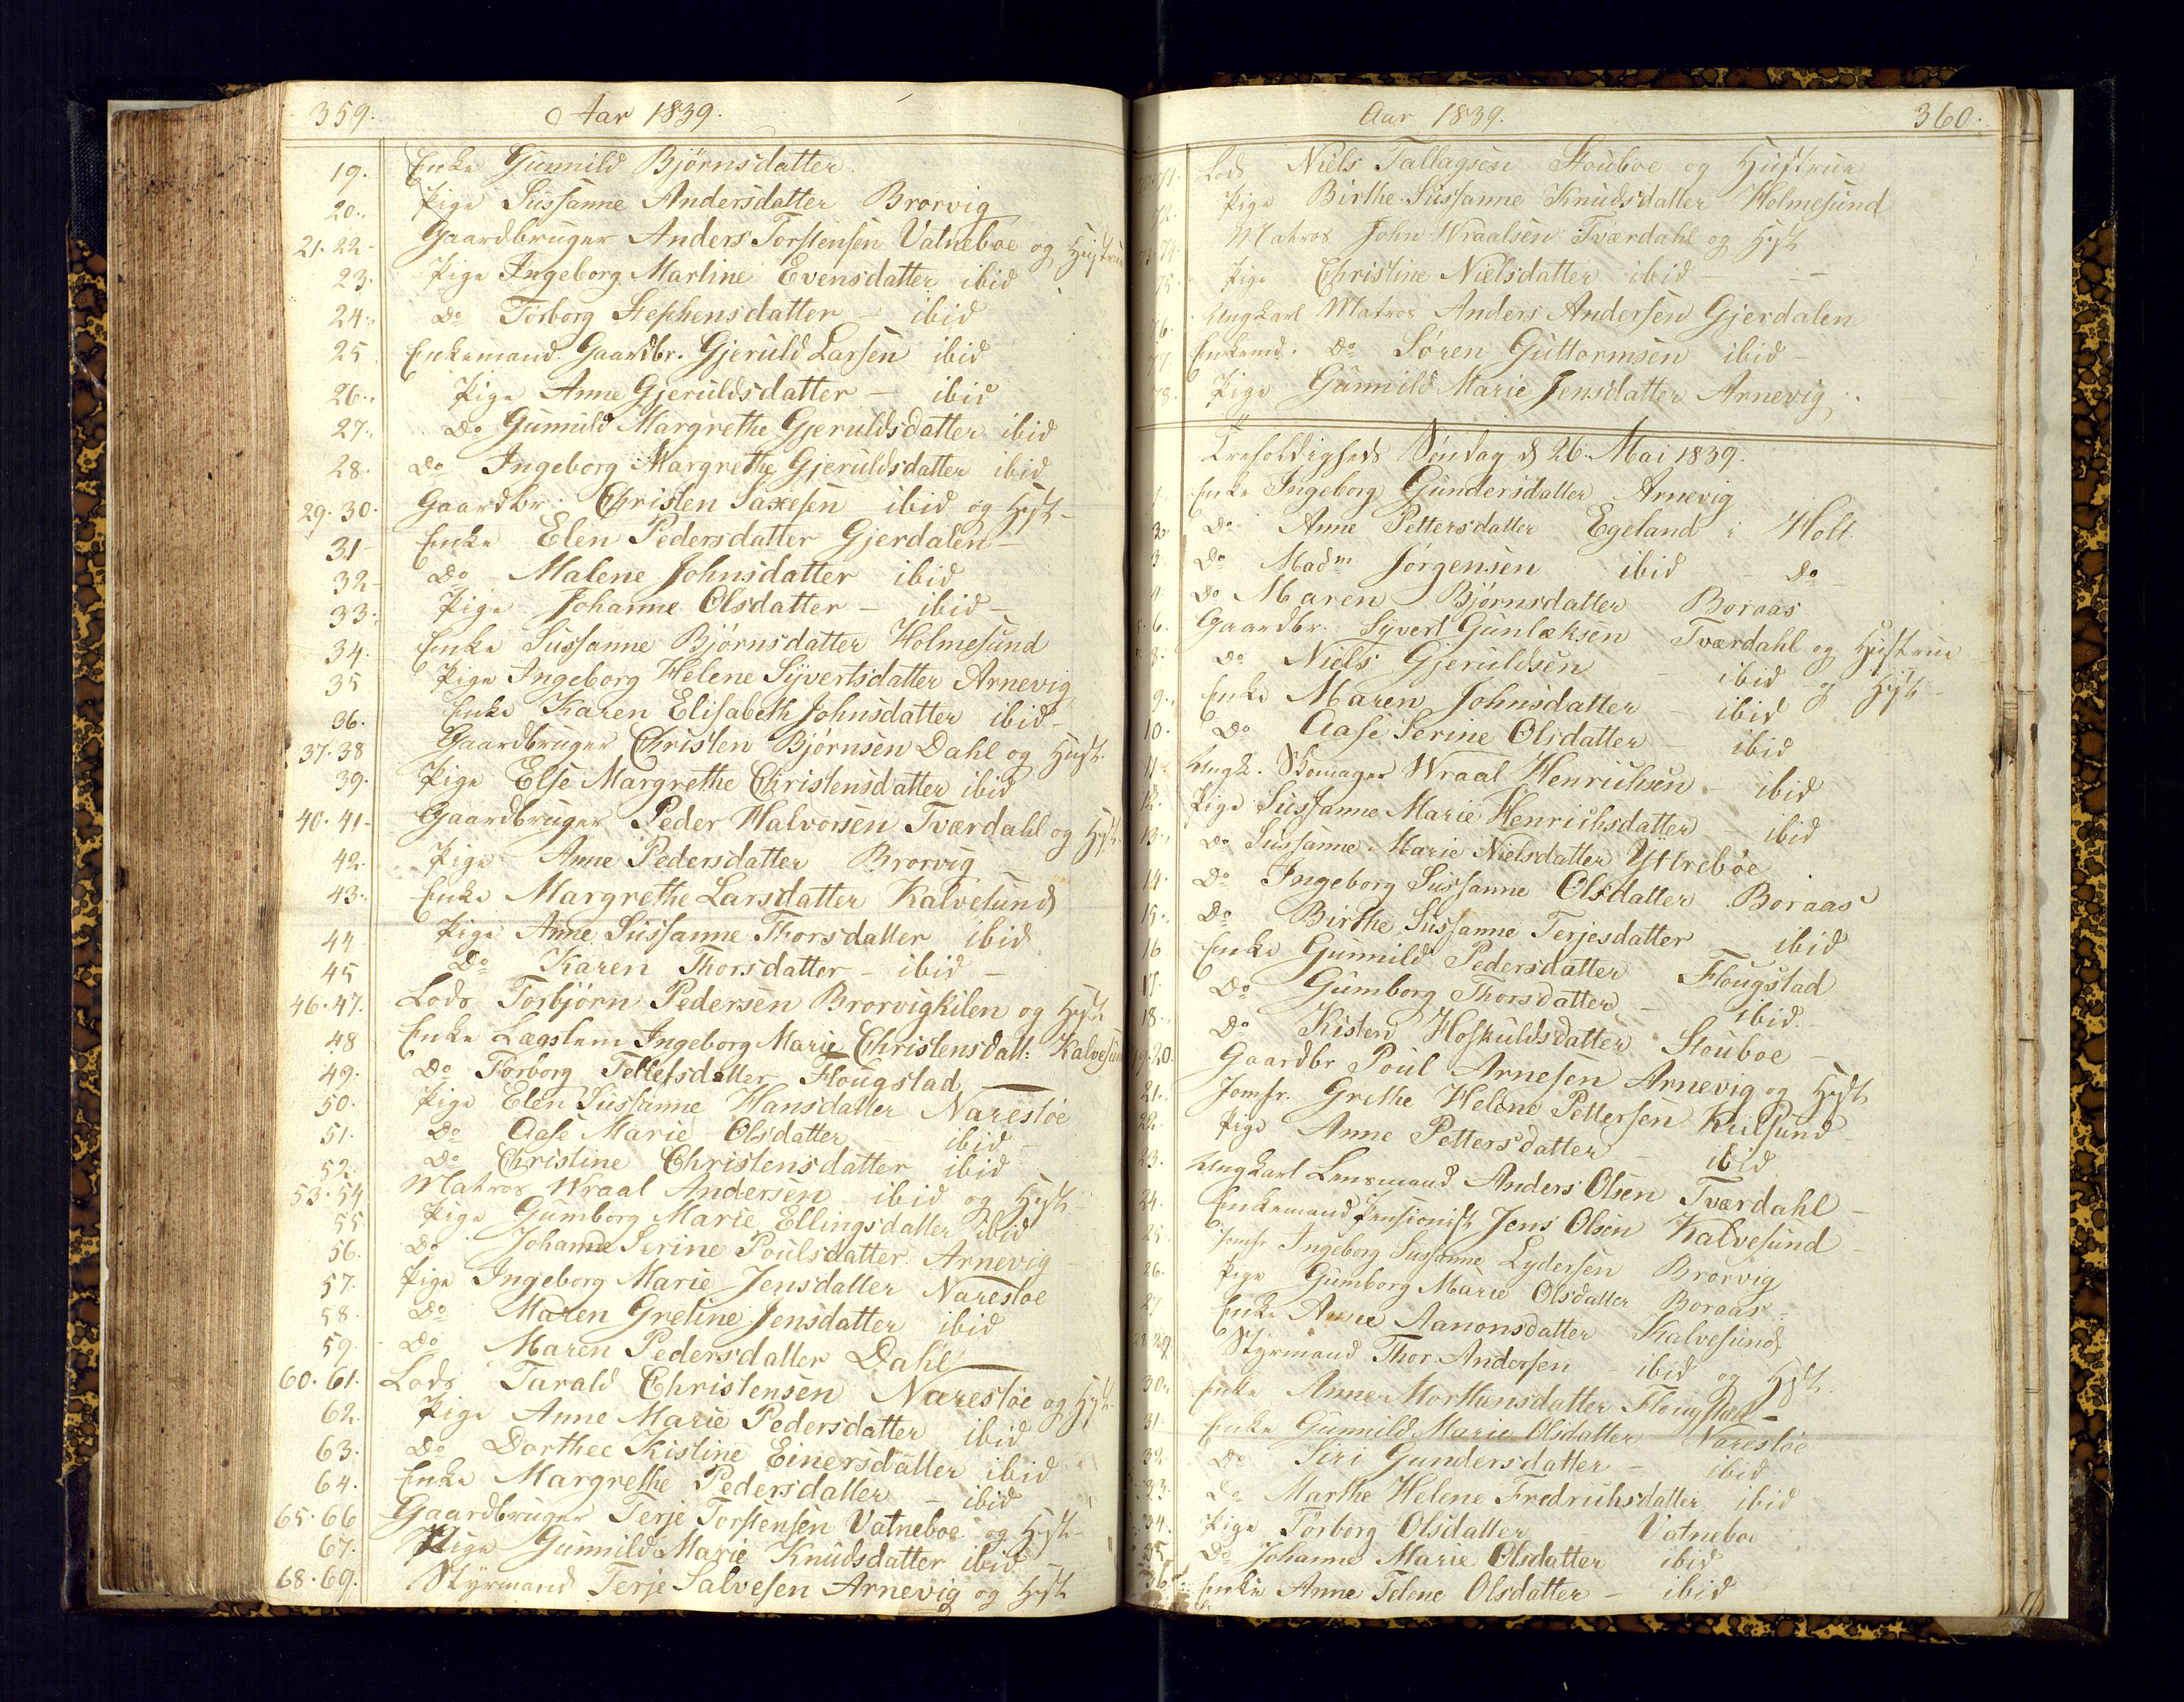 359.
Aar 1839.
19. Enke Gunnild Bjørnsdatter
20. Pige Sussanne Andersdatter Brorvig
21. 22 Gaardbruger Anders Torstensen Vatneboe og Hustrue
23. Pige Ingeborg Martine Evensdatter ibid
24. Do Torborg Stephensdatter - ibid
25 Enkemand. Gaardbr. Gjeruld Larsen ibid
26. Pige Anne Gjeruldsdatter - ibid
27. Do Gunnild Margrethe Gjeruldsdatter ibid
28. Do Ingeborg Margrethe Gjeruldsdatter ibid
29. 30. Gaardbr. Christen Saxesen ibid og Hust
31 Enke Elen Pedersdatter Gjerdalen
32 Do Malene Johnsdatter ibid
33. Pige Johanne Olsdatter - ibid
34. Enke Sussanne Bjørnsdatter Holmesund
35 Pige Ingeborg Helene Syvertsdatter Arnevig
36. Enke Karen Elisabeth Johnsdatter ibid
37. 38 Gaardbruger Christen Bjørnsen Dahl og Hust.
39. Pige Else Margrethe Christensdatter ibid
40. 41 Gaardbruger Peder Halvorsen Tværdahl og Hust
42. Pige Anne Pedersdatter Brorvig
43. Enke Margrethe Larsdatter Kalvesund
44 Pige Anne Sussanne Thorsdatter ibid
45 Do Karen Thorsdatter - ibid -
46. 47. Lods Torbjørn Pedersen Brorvigkilen og Hust
48 Enke Lægslem Ingeborg Marie Christensdatt: Kalvesund
49. Do Torborg Tellefsdatter Flougstad
50. Pige Elen Sussanne Hansdatter Narestøe
51. Do Aase Marie Olsdatter - ibid
52. Do Christine Christensdatter ibid
53. 54 Matros Wraal Andersen ibid og Hust
55 Pige Gumborg Marie Ellingsdatter ibid
56. Do Johanne Serine Poulsdatter Arnevig
57. Pige Ingeborg Marie Jensdatter Narestøe
58. Do Maren Gretine Jensdatter ibid
59. Do Maren Pedersdatter Dahl
60. 61. Lods Tarald Christensen Narestøe og Hust
62. Pige Anne Marie Pedersdatter ibid
63. Do Dorthee Kistine Einersdatter ibid
64. Enke Margrethe Pedersdatter - ibid
65. 66 Gaardbruger Terje Torstensen Vatneboe og Hust
67. Pige Gunnild Marie Knudsdatter ibid
68. 69. Styrmand Terje Salvesen Arnevig og Hust
Aar 1839.
360.
70. 71. Lods Niels Tallagsen Stouboe og Hustrue
72. Pige Birthe Sussanne Knudsdatter Holmesund
73 74. Matros John Wraalsen Tværdahl og Hust
75. Pige Christine Nielsdatter ibid -
76. Ungkarl Matros Anders Andersen Gjerdalen
77. Enkemd. Do Søren Guttormsen ibid -
78. Pige Gunnild Marie Jensdatter Arnevig
Trefoldigheds Søndag d 26. Mai 1839.
1. Enke Ingeborg Gundersdatter Arnevig
2. Do Anne Pettersdatter Egeland i Holt.
3. Do Madm Jørgensen ibid - Do
4. Do Maren Bjørnsdatter Boraas
5. 6. Gaardbr. Syvert Gunlæksen Tværdahl og Hustrue
7. 8. Do Niels Gjeruldsen - ibid og Hust
9. Enke Maren Johnsdatter - ibid
10. Do Aase Serine Olsdatter - ibid
11. Ungk. Skomager Wraal Henrichsen - ibid
12. Pige Sussanne Marie Henrichsdatter - ibid
13. Do Sussanne Marie Nielsdatter Yttrebøe
14. Do Ingeborg Sussanne Olsdatter Boraas
15. Do Birthe Sussanne Terjesdatter ibid
16 Enke Gunnild Pedersdatter Flougstad
17. Do Gumborg Thorsdatter - ibid
18. Do Kisten Hoskuldsdatter Stouboe -
19. 20. Gaardbr Poul Arnesen Arnevig og Hust
21. Jomfr. Grethe Helene Pettersen Kuelsund
22. Pige Anne Pettersdatter - ibid
23. Ungkarl Lensmand Anders Olsen Tværdahl -
24. Enkemand Pensionist Jens Olsen Kalvesund -
25. Jomfr Ingeborg Sussanne Lydersen Brorvig
26. Pige Gumborg Marie Olsdatter Boraas
27 Enke Anne Aanonsdatter Kalvesund
28 29 Styrmand Thor Andersen - ibid og Hust.
30. Enke Anne Morthensdatter Flougstad
31. Enke Gunnild Marie Olsdatter Narestøe
32. Do Siri Gundersdatter - ibid
33. Do Marthe Helene Fredrichsdatter ibid
34. Pige Torborg Olsdatter - Vatneboe
35. Do Johanne Marie Olsdatter ibid
36. Enke Anne Telene Olsdatter - ibid